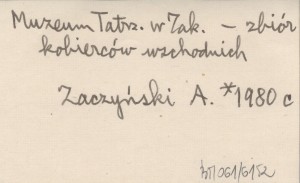 Muzeum Tatrz. w Zak. – zbiór
kobierców wschodnich
Zaczyński A. *1980 c
061/6152